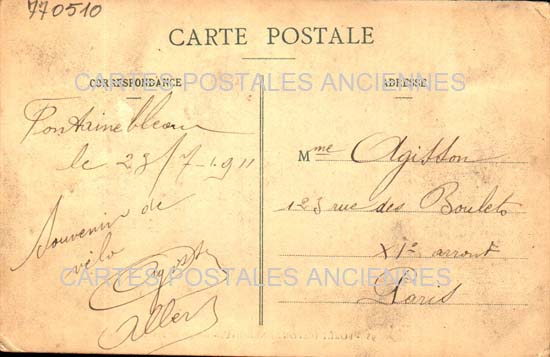 770510
CARTE POSTALE
CARTES POSTALES ANCIENNES
CORRESPONDANCE
ADRESSE
Fontainebleau
le 23/7-1911
Souvenir de
vélo
Agisson
Albert
Mme Agisson
123 rue des Boulets
XIe arront
Paris
CARTES POSTALES ANCIENNES